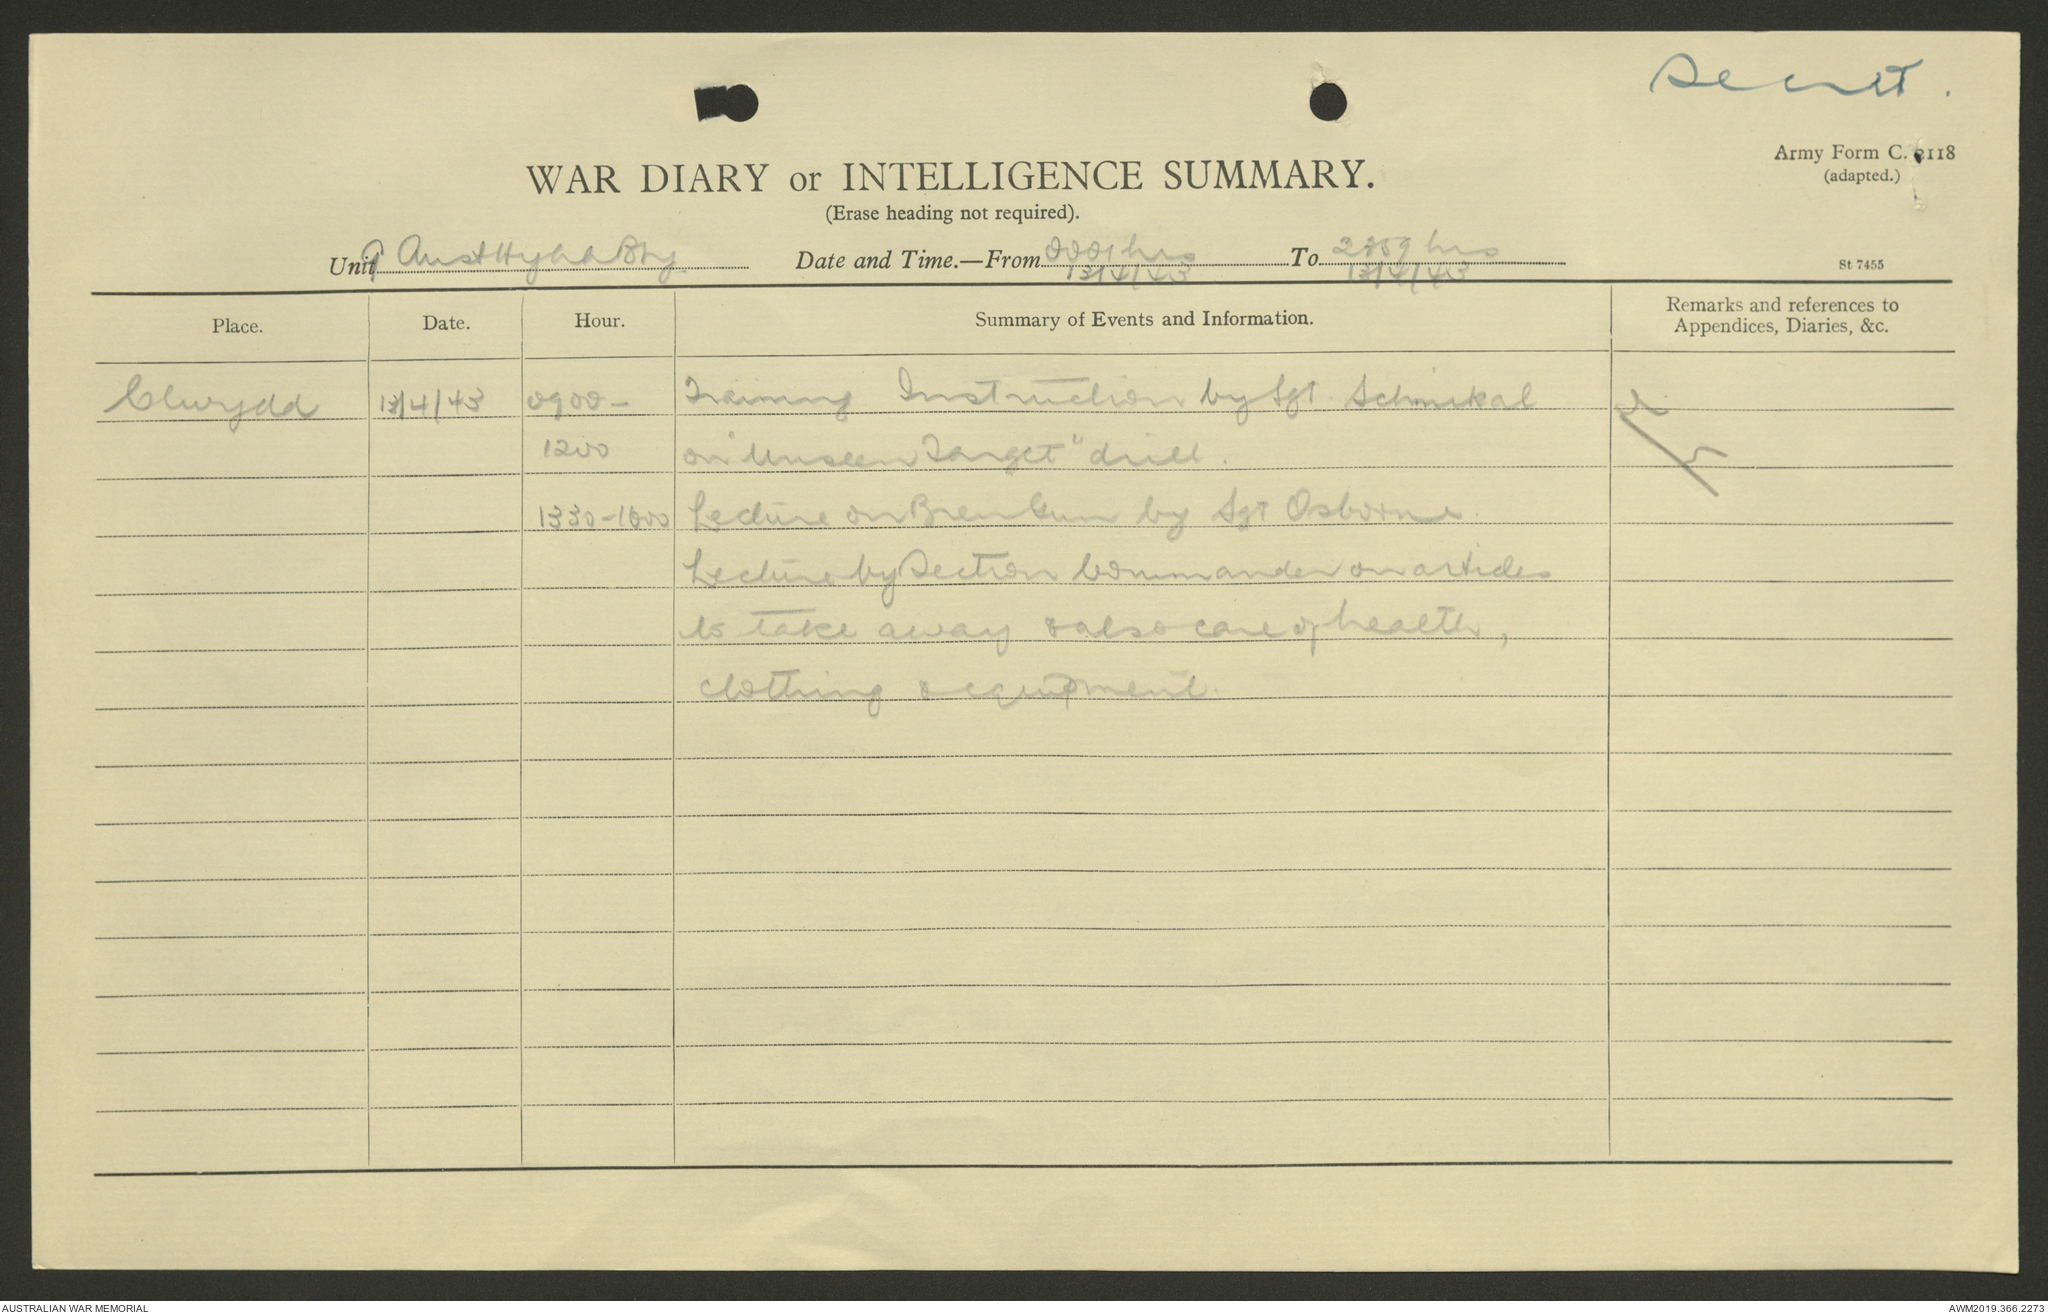 Secret.
Army Form C. 2118
(adapted.)
WAR DIARY or INTELLIGENCE SUMMARY.
(Erase heading not required).
Unit 9 Aust Hy AA Bty. Date and Time.—From 0001 hrs 13/4/43 To 2359 hrs 13/4/43
St 7455
Place. Date. Hour. Summary of Events and Information. Remarks and references to Appendices, Diaries, &c.
Clwydd 13/4/43 0900- Training Instruction by Sgt. Schmikal
1200 on "Unseen Target" drill.
1330-1600 Lecture on Bren Gun by Sgt Osborne.
Lecture by Section Commander on articles
to take away & also care of health,
clothing & equipment.
AUSTRALIAN WAR MEMORIAL
AWM2019.366.2273